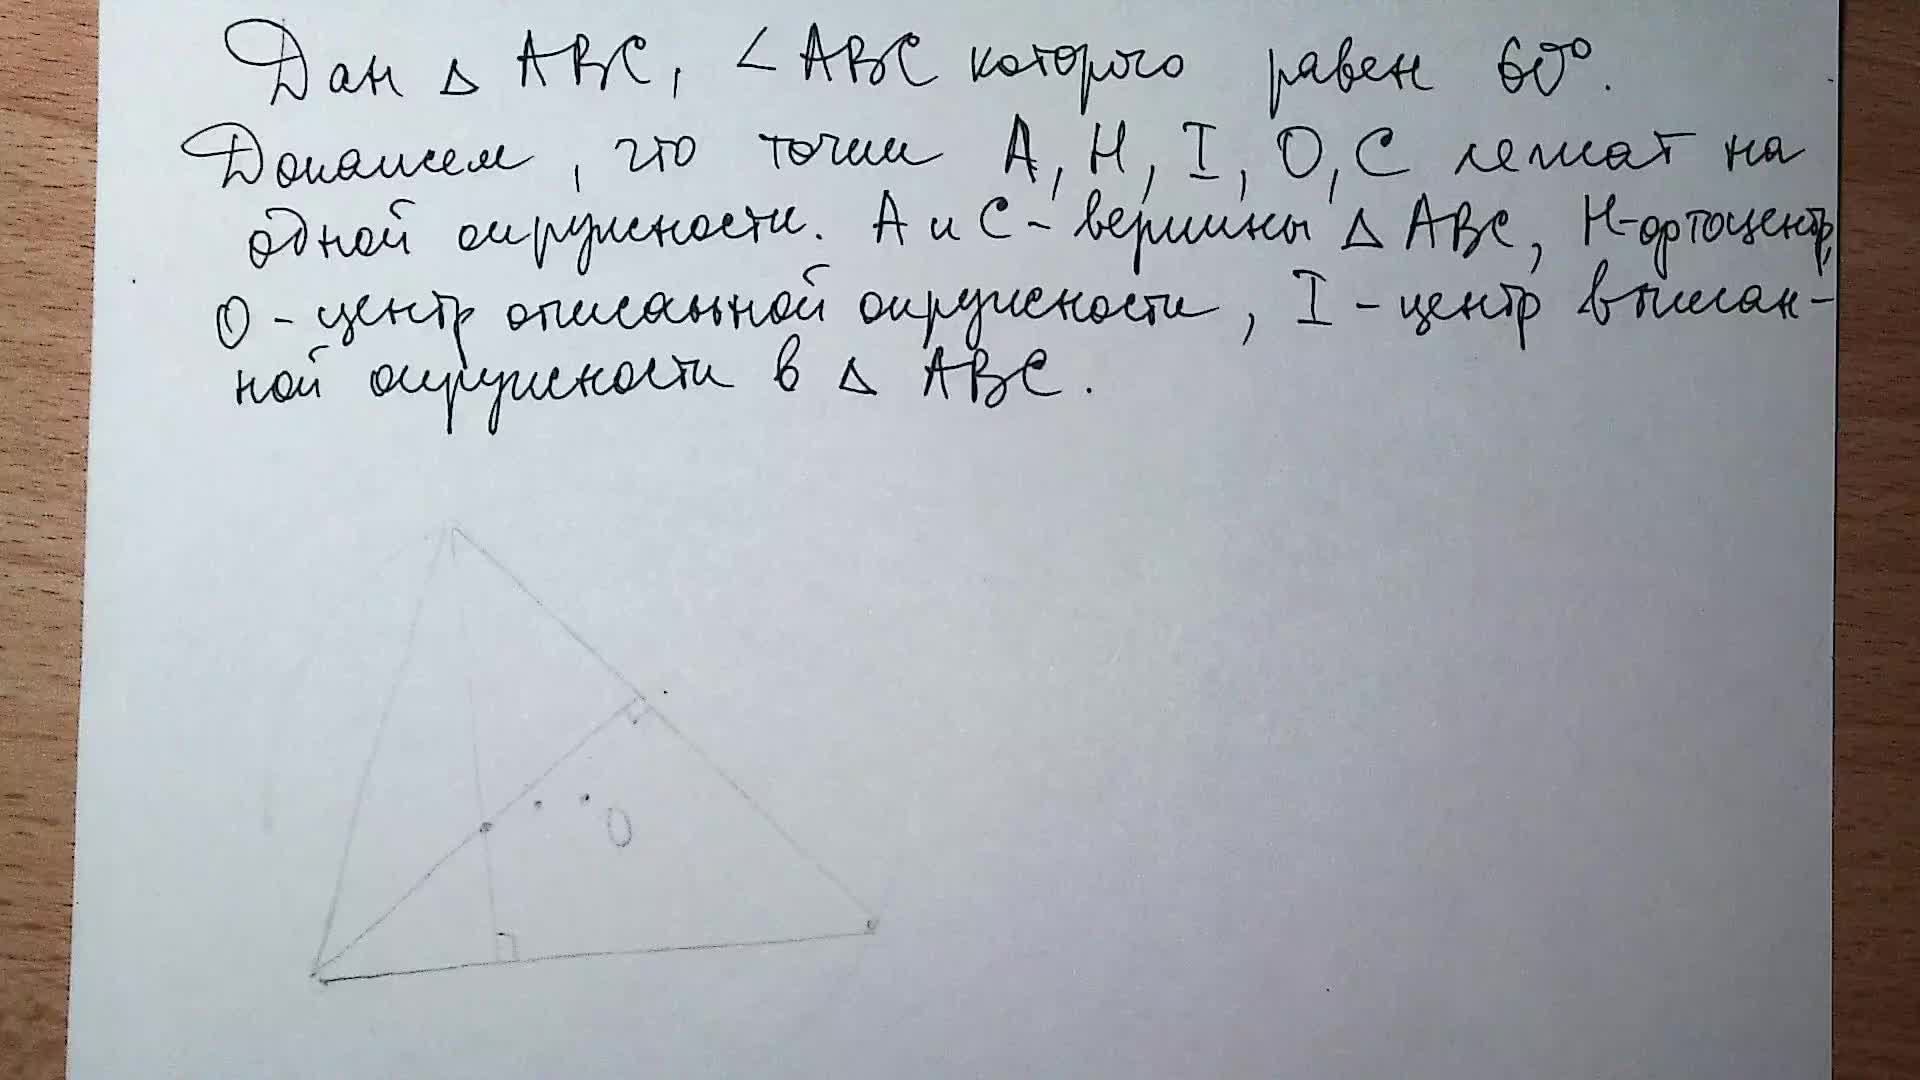 Дан △ ABC, ∠ABC которого равен 60°.
Докажем, что точки A, H, I, O, C лежат на
одной окружности. A и C - вершины △ ABC, H-ортоцентр,
O - центр описанной окружности, I - центр вписан-
ной окружности в △ ABC.
O